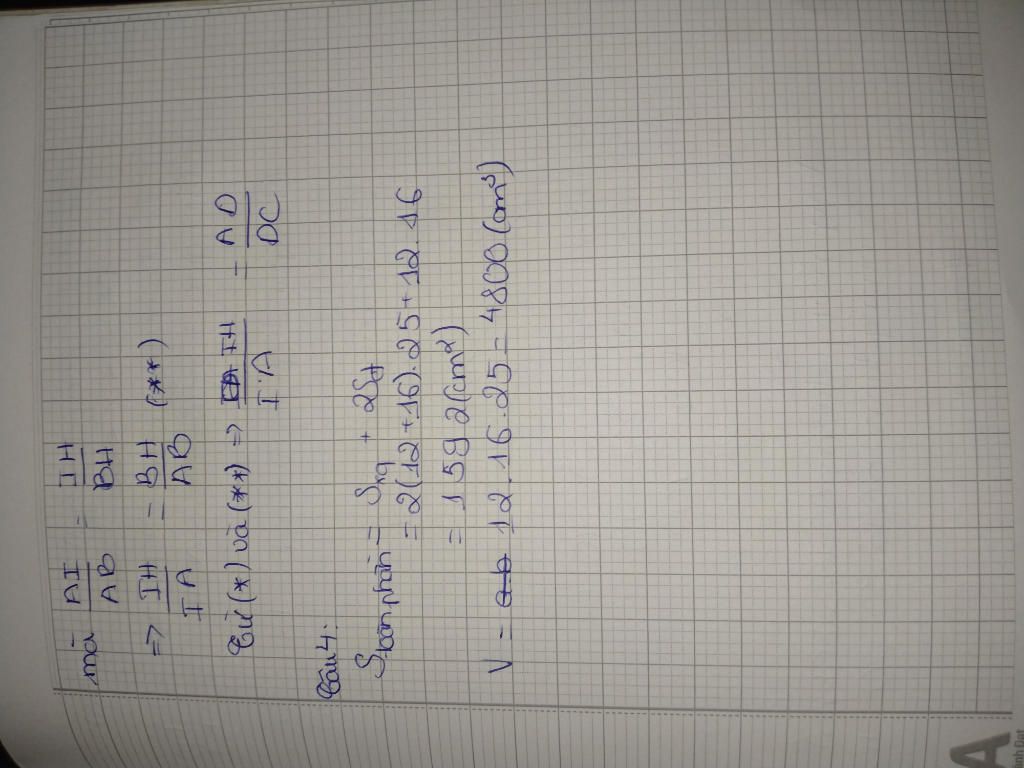 mà AI/AB = IH/BH
=> IH/IA = BH/AB (**)
Từ (*) và (**) => IH/IA = AD/DC
Câu 4:
Stoàn phần = Sxq + 2Sđ
= 2(12+16).25+12.16
= 1592(cm²)
V = 12.16.25 = 4800(cm³)
A